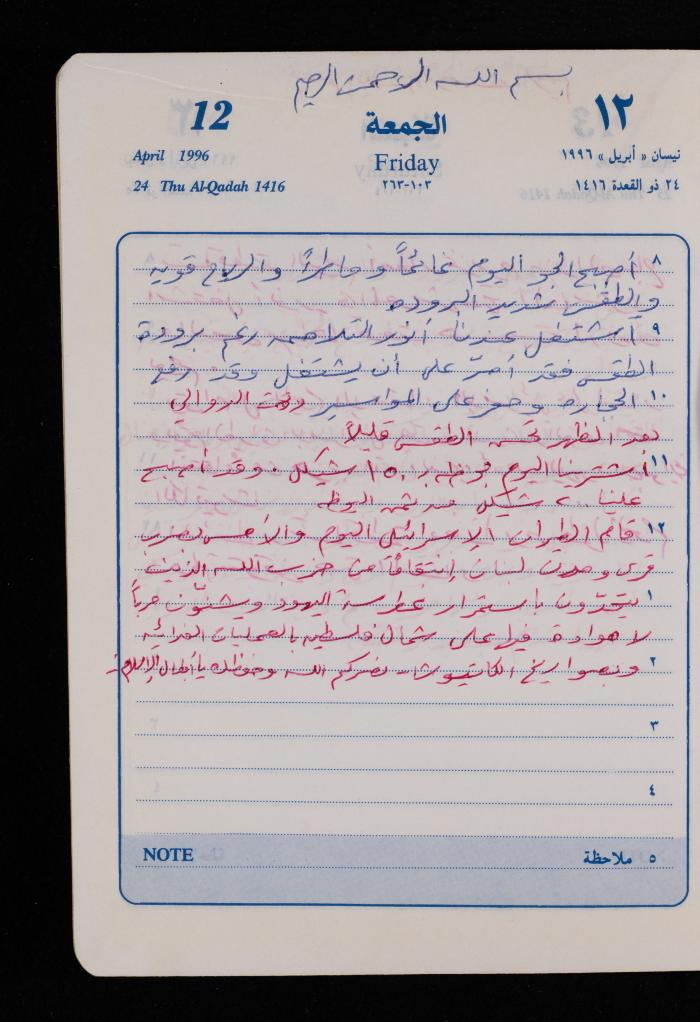 بسم الله الرحمن الرحيم
12 الجمعة ١٢
April 1996 Friday نيسان « أبريل » ١٩٩٦
24 Thu Al-Qadah 1416 ٢٦٣-١٠٣ ٢٤ ذو القعدة ١٤١٦
٨ أصبح الجو اليوم غائماً وماطراً والرياح قويه
والطقس شديد البروده
٩ اشتغل عندنا أنور التلاحمه رغم برودة
الطقس فقد أصرّ على أن يشتغل وقد رفع
١٠ الحجاره وحفر على المواسير وتحت الدوالي
بعد الظهر تحسن الطقس قليلاً
١١ اشترينا اليوم بوظه بـ ١٥٠ شيكل . وقد أصبح
علينا ٢٠٠ شيكل من ثمن البوظه
١٢ قام الطيران الإسرائيلي اليوم والأمس بضرب
قرى ومدن لبنان إنتقاماً من حزب الله الذين
١ يتحدّون باستمرار غطرسة اليهود ويشنّون حرباً
لا هوادة فيها على شمال فلسطين بالعمليات الفدائيه
٢ وبصواريخ الكاتيوشا - نصركم الله وحفظكم يا أبطال الإسلام
٣
٤
NOTE ٥ ملاحظة